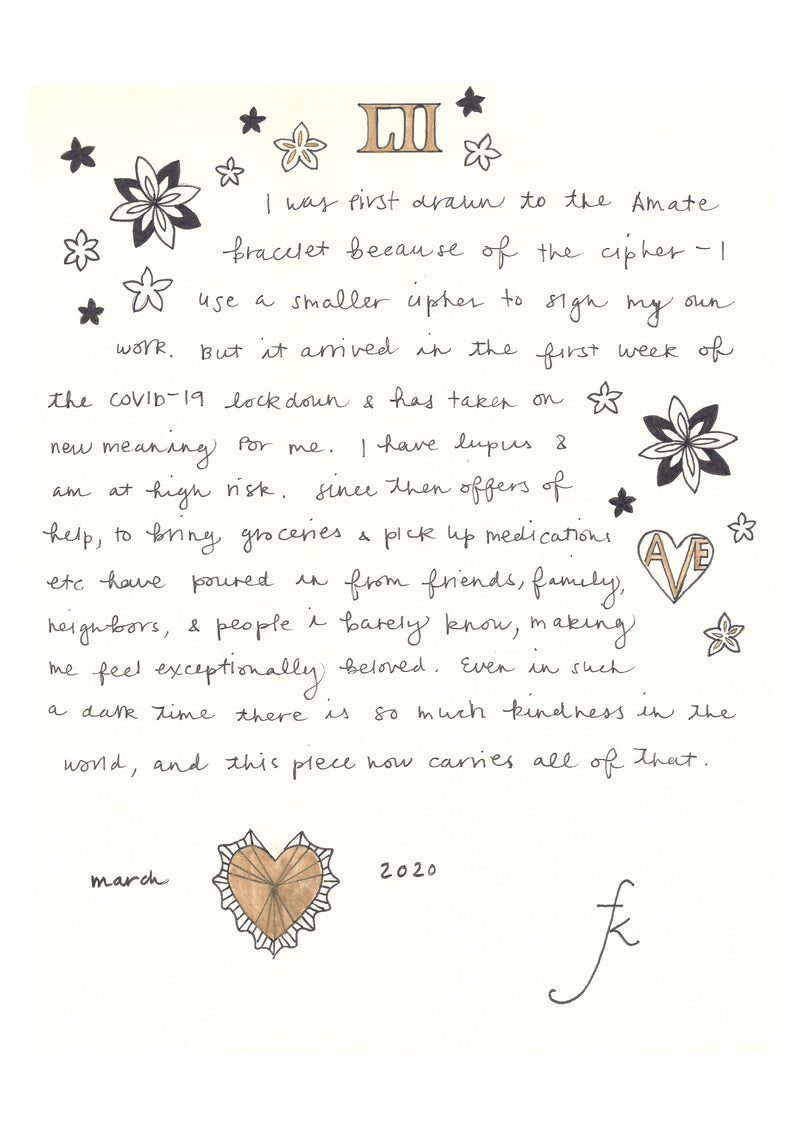 LII
I was first drawn to the Amate
bracelet because of the cipher – I
use a smaller cipher to sign my own
work. But it arrived in the first week of
the COVID-19 lockdown & has taken on
new meaning for me. I have lupus &
am at high risk. Since then offers of
help, to bring groceries & pick up medications
etc have poured in from friends, family,
neighbors, & people i barely know, making
me feel exceptionally beloved. Even in such
a dark time there is so much kindness in the
world, and this piece now carries all of that.
AVE
march 2020
fk